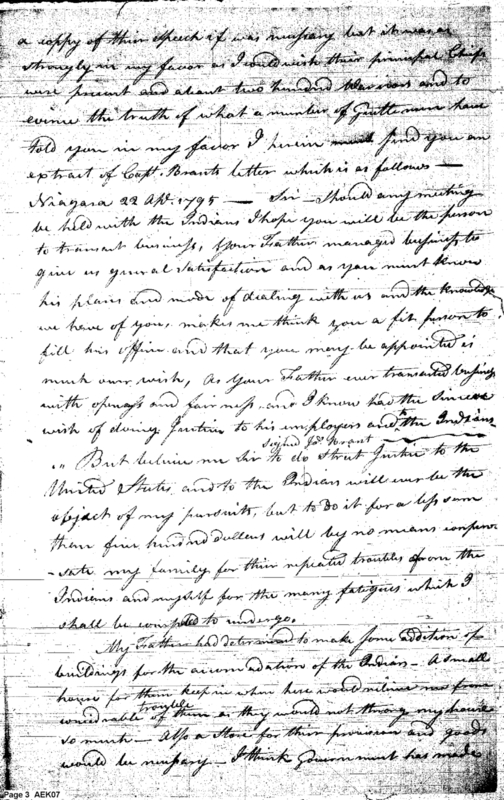 a coppy of their Speech if was nessary but it was as
strongly in my favor as I could wish their principal Chiefs
were present and about two hundred Warriors and to
evince the truth of what a number of Gentlemen have
told you in my favor I herein send you an
extract of Capt. Brants letter which is as follows —
Niagara 22 Apl. 1795 — Sir — Should any meeting
be held with the Indians I hope you will be the person
to transact business, Your Father managed business to
give us general Satisfaction and as you must know
his plans and mode of dealing with us and the knowledge
we have of you, makes me think you a fit person to
fill his office and that you may be appointed is
much our wish, as Your Father ever transacted business
with openess and fairness and I know had the Sincere
wish of doing Justice to his employers and to the Indians
signed Jos. Brant
" But believe me Sir to do Strict Justice to the
United States and to the Indians will ever be the
object of my pursuits, but to do it for a less sum
than five hundred dollars will by no means compen-
-sate my family for their repeated troubles from the
Indians and myself for the many fatigues which I
shall be compelled to undergo.
My Father had determined to make some addition of
buildings for the accomodation of the Indians — A small
house for them keep in when here would relieve me from
considerable trouble of them as they would not throng my house
so much — Also a Store for their provision and goods
would be nessary — I think Government has made
Page 3 AEK07